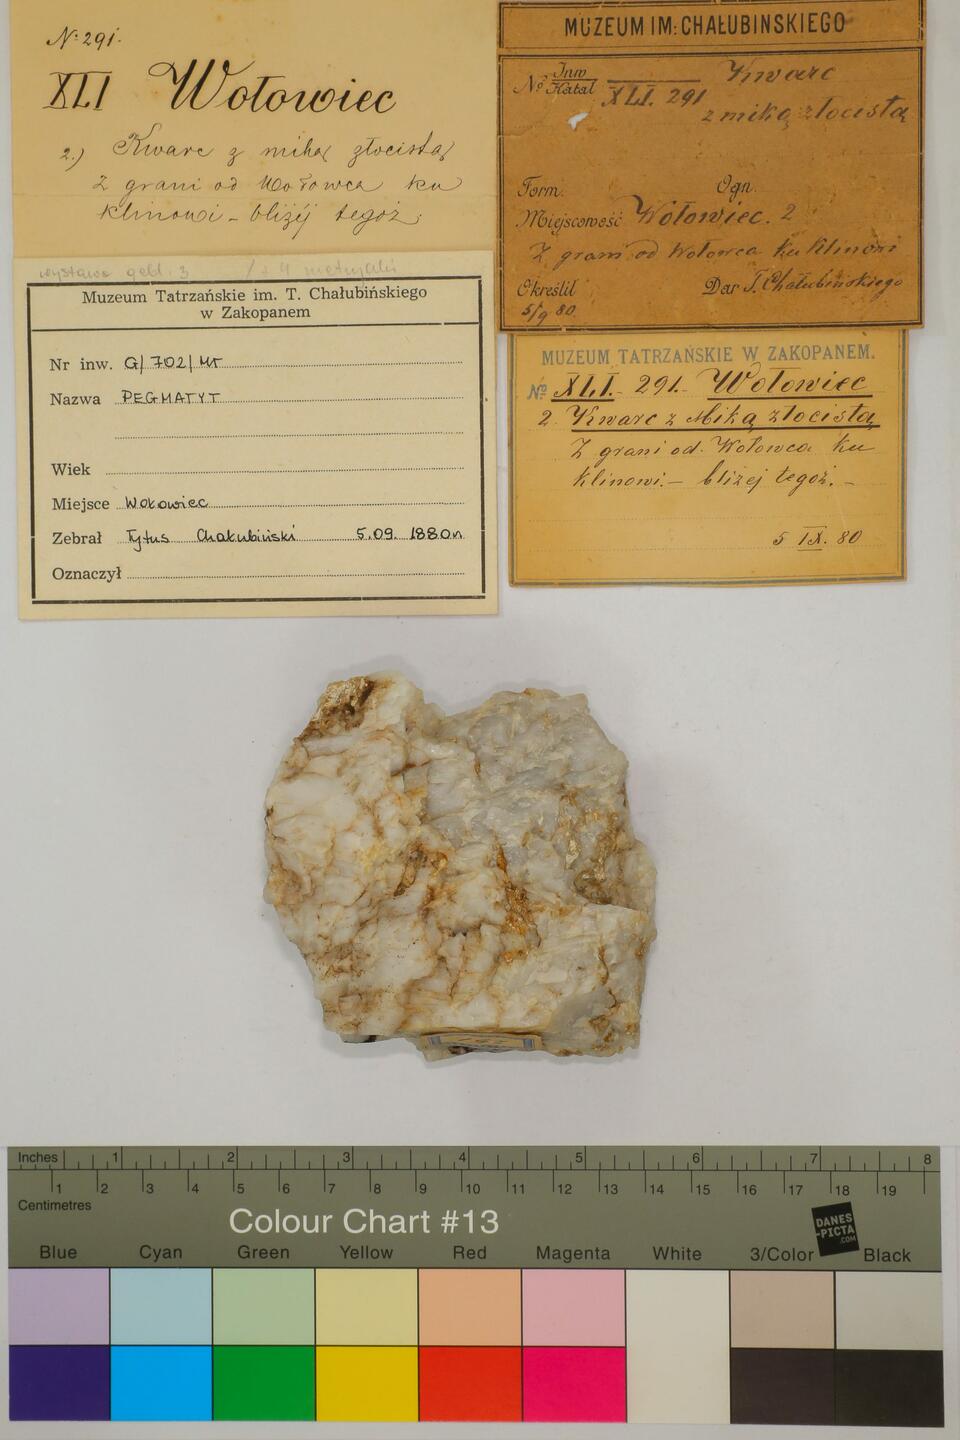 No 291.
XLI Wołowiec
2.) Kwarc z miką złocistą
Z grani od Wołowca ku
Klinowi - bliżej tegoż.
MUZEUM IM: CHAŁUBINSKIEGO
No Inw Katal XLI. 291 Kwarc
z miką złocistą
Form. Ogn.
Miejscowość Wołowiec. 2
Z grani od Wołowca ku Klinowi
Określił Dar T. Chałubińskiego
5/9 80
wystawa geol. 3
Muzeum Tatrzańskie im. T. Chałubińskiego
w Zakopanem
Nr inw. G/702/MT
Nazwa PEGMATYT
Wiek
Miejsce Wołowiec
Zebrał Tytus Chałubiński 5.09. 1880r.
Oznaczył
MUZEUM TATRZAŃSKIE W ZAKOPANEM.
No XLI. - 291. Wołowiec
2 Kwarc z Miką złocistą
Z grani od Wołowca ku
Klinowi. - bliżej tegoż. -
5 IX. 80
Inches 1 2 3 4 5 6 7 8
1 2 3 4 5 6 7 8 9 10 11 12 13 14 15 16 17 18 19
Centimetres
Colour Chart #13
DANES
-PICTA
.COM
Blue Cyan Green Yellow Red Magenta White 3/Color Black